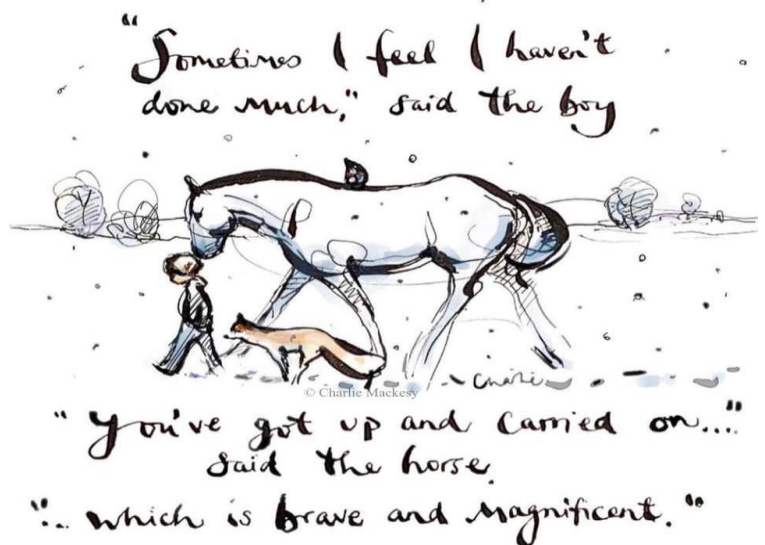 "Sometimes I feel I haven't
done much," said the boy
Charlie
© Charlie Mackesy
"You've got up and carried on..."
said the horse.
"... which is brave and magnificent."